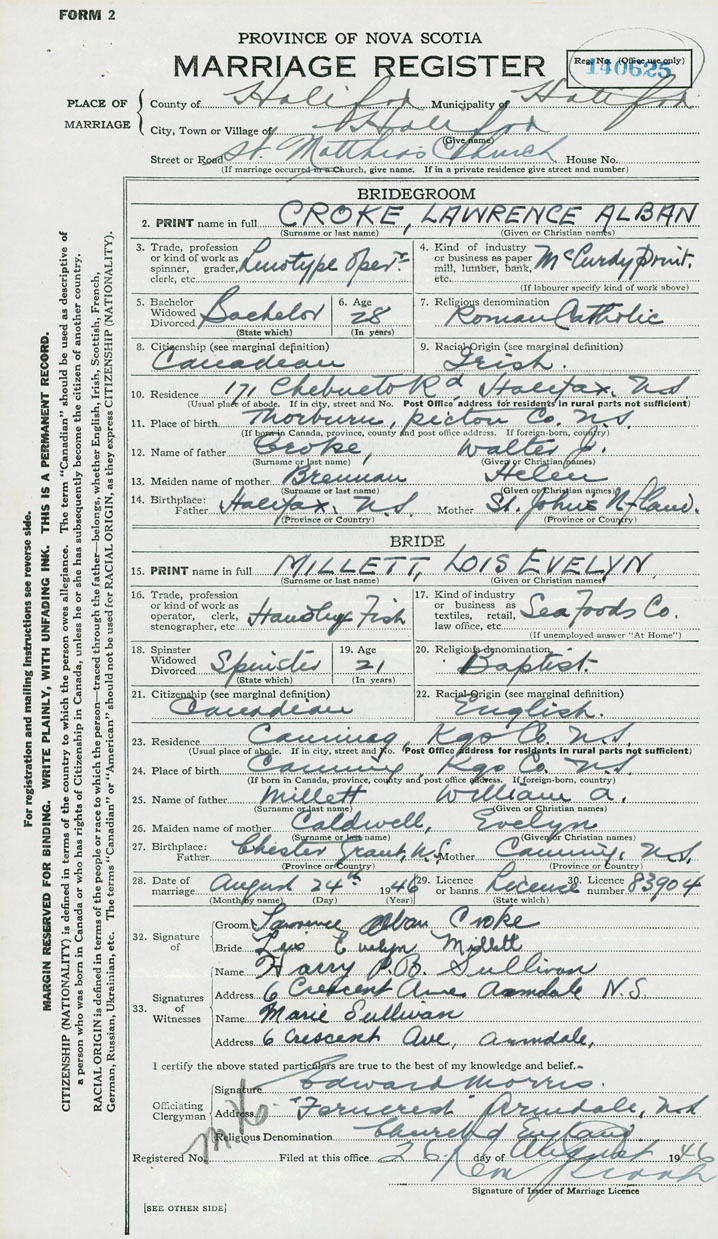 FORM 2
PROVINCE OF NOVA SCOTIA
MARRIAGE REGISTER
Reg. No. (Office use only)
140625
PLACE OF MARRIAGE
County of Halifax Municipality of Halifax
City, Town or Village of Halifax
(Give name)
Street or Road St. Matthias Church House No.
(If marriage occurred in a Church, give name. If in a private residence give street and number)
BRIDEGROOM
2. PRINT name in full CROKE, LAWRENCE ALBAN
(Surname or last name) (Given or Christian names)
3. Trade, profession or kind of work as spinner, grader, clerk, etc. Linotype Oper.
4. Kind of industry or business as paper mill, lumber, bank, etc. McCurdy Print.
(If labourer specify kind of work above)
5. Bachelor Widowed Divorced Bachelor
(State which)
6. Age 28
(In years)
7. Religious denomination Roman Catholic
8. Citizenship (see marginal definition) Canadian
9. Racial Origin (see marginal definition) Irish.
10. Residence 171 Chebucto Rd, Halifax, N.S
(Usual place of abode. If in city, street and No. Post Office address for residents in rural parts not sufficient)
11. Place of birth Thorburn, Pictou Co. N.S.
(If born in Canada, province, county and post office address. If foreign-born, country)
12. Name of father Croke, Walter J.
(Surname or last name) (Given or Christian names)
13. Maiden name of mother Brennan Helen
(Surname or last name) (Given or Christian names)
14. Birthplace: Father Halifax, N.S. Mother St. John's Nfland.
(Province or Country) (Province or Country)
BRIDE
15. PRINT name in full MILLETT, LOIS EVELYN
(Surname or last name) (Given or Christian names)
16. Trade, profession or kind of work as operator, clerk, stenographer, etc. Handley Fish
17. Kind of industry or business as textiles, retail, law office, etc. Sea Foods Co.
(If unemployed answer "At Home")
18. Spinster Widowed Divorced Spinster
(State which)
19. Age 21
(In years)
20. Religious denomination Baptist.
21. Citizenship (see marginal definition) Canadian
22. Racial Origin (see marginal definition) English.
23. Residence Canning, Kgs Co. N.S
(Usual place of abode. If in city, street and No. Post Office address for residents in rural parts not sufficient)
24. Place of birth Canning, Kgs Co. N.S
(If born in Canada, province, county and post office address. If foreign-born, country)
25. Name of father Millett William A.
(Surname or last name) (Given or Christian names)
26. Maiden name of mother Caldwell, Evelyn
(Surname or last name) (Given or Christian names)
27. Birthplace: Father Chester Grant, N.S. Mother Canning, N.S.
(Province or Country) (Province or Country)
28. Date of marriage August 24th 1946
(Month by name) (Day) (Year)
29. Licence or banns License
(State which)
30. Licence number 83904
32. Signature of
Groom Lawrence Alban Croke
Bride Lois Evelyn Millett
33. Signatures of Witnesses
Name Harry P.B. Sullivan
Address 6 Crescent Ave Armdale N.S.
Name Marie Sullivan
Address 6 Crescent Ave, Armdale,
I certify the above stated particulars are true to the best of my knowledge and belief.
Officiating Clergyman
Signature Edward Morris.
Address "Ferncrest" Armdale, N.S
Religious Denomination Church of England
Registered No. Filed at this office 26 day of August 1946
Signature of Issuer of Marriage Licence
[SEE OTHER SIDE]
For registration and mailing instructions see reverse side.
MARGIN RESERVED FOR BINDING. WRITE PLAINLY, WITH UNFADING INK. THIS IS A PERMANENT RECORD.
CITIZENSHIP (NATIONALITY) is defined in terms of the country to which the person owes allegiance. The term "Canadian" should be used as descriptive of
a person who was born in Canada or who has rights of Citizenship in Canada, unless he or she has subsequently become the citizen of another country.
RACIAL ORIGIN is defined in terms of the people or race to which the person—traced through the father—belongs, whether English, Irish, Scottish, French,
German, Russian, Ukrainian, etc. The terms "Canadian" or "American" should not be used for RACIAL ORIGIN, as they express CITIZENSHIP (NATIONALITY).